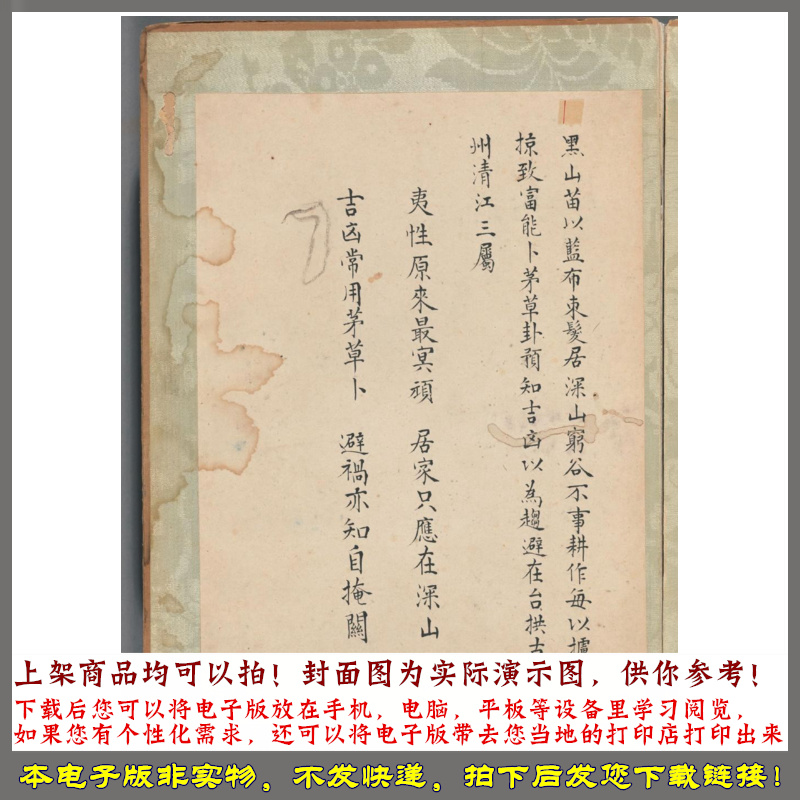 黑山苗以藍布束髮居深山窮谷不事耕作每以擄
掠致富能卜茅草卦預知吉凶以為趨避在台拱古
州清江三屬
夷性原來最冥頑 居家只應在深山
吉凶常用茅草卜 避禍亦知自掩關
上架商品均可以拍！封面图为实际演示图，供你参考！
下载后您可以将电子版放在手机，电脑，平板等设备里学习阅览，
如果您有个性化需求，还可以将电子版带去您当地的打印店打印出来
本电子版非实物，不发快递，拍下后发您下载链接！